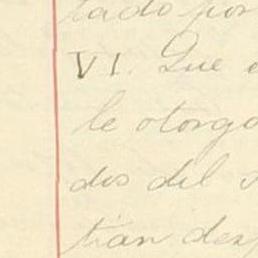 tado por
VI. Que
le otorga
dos del
tían des